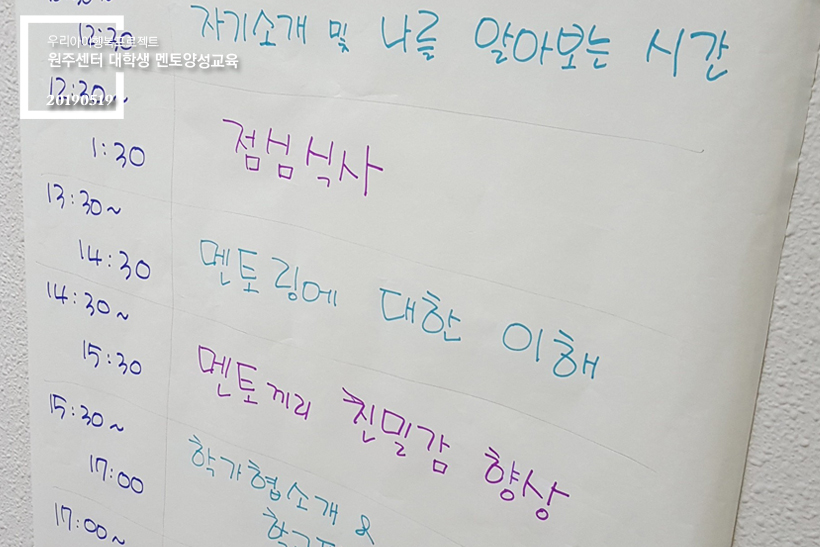 우리아이행복프로젝트
원주센터 대학생 멘토양성교육
20190519
12:30
자기소개 및 나를 알아보는 시간
12:30~
1:30
점심식사
13:30~
14:30
멘토링에 대한 이해
14:30~
15:30
멘토끼리 친밀감 향상
15:30~
17:00
학가협소개 &
17:00~